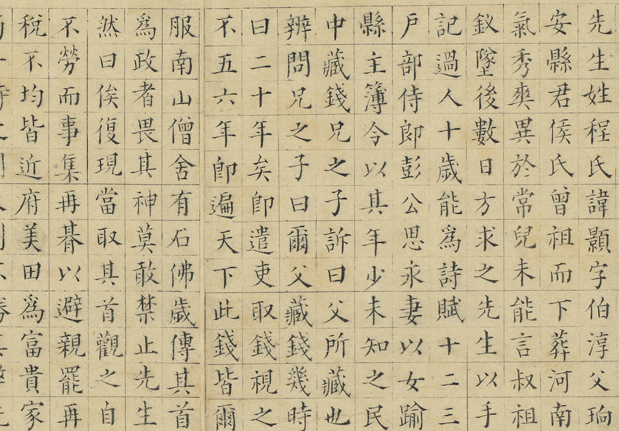 先生姓程氏諱顥字伯淳父珦
安縣君侯氏曾祖而下葬河南
氣秀爽異於常兒未能言叔祖
釵墜後數日方求之先生以手
記過人十歲能爲詩賦十二三
戶部侍郎彭公思永妻以女踰
縣主簿令以其年少未知之民
中藏錢兄之子訴曰父所藏也
辨問兄之子曰爾父藏錢幾時
曰二十年矣卽遣吏取錢視之
不五六年卽遍天下此錢皆爾
服南山僧舍有石佛歲傳其首
爲政者畏其神莫敢禁止先生
然曰俟復現當取其首觀之自
不勞而事集再朞以避親罷再
稅不均皆近府美田爲富貴家